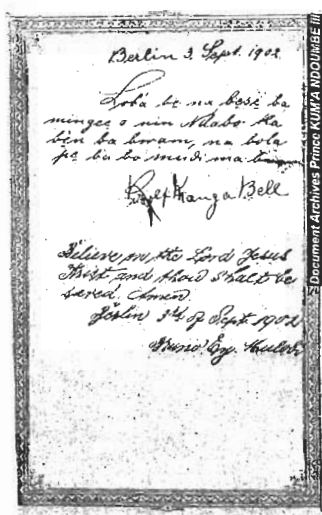 Berlin 3. Sept. 1902
Loba be na besé ba
mingee o nin Ndabo ka
ben ba bwam, na bola
pe ba bo mudi ma
Rudolf Manga Bell
Believe on the Lord Jesus
Christ, and thou shalt be
saved. Amen.
Berlin 3rd of Sept. 1902
Document Archives Prince KUM'A NDOUMBE III